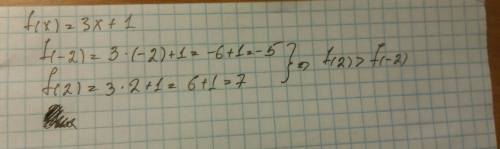 f(x) = 3x + 1
f(-2) = 3·(-2)+1 = -6+1 = -5
f(2) = 3·2+1 = 6+1 = 7 } ⇒ f(2) > f(-2)